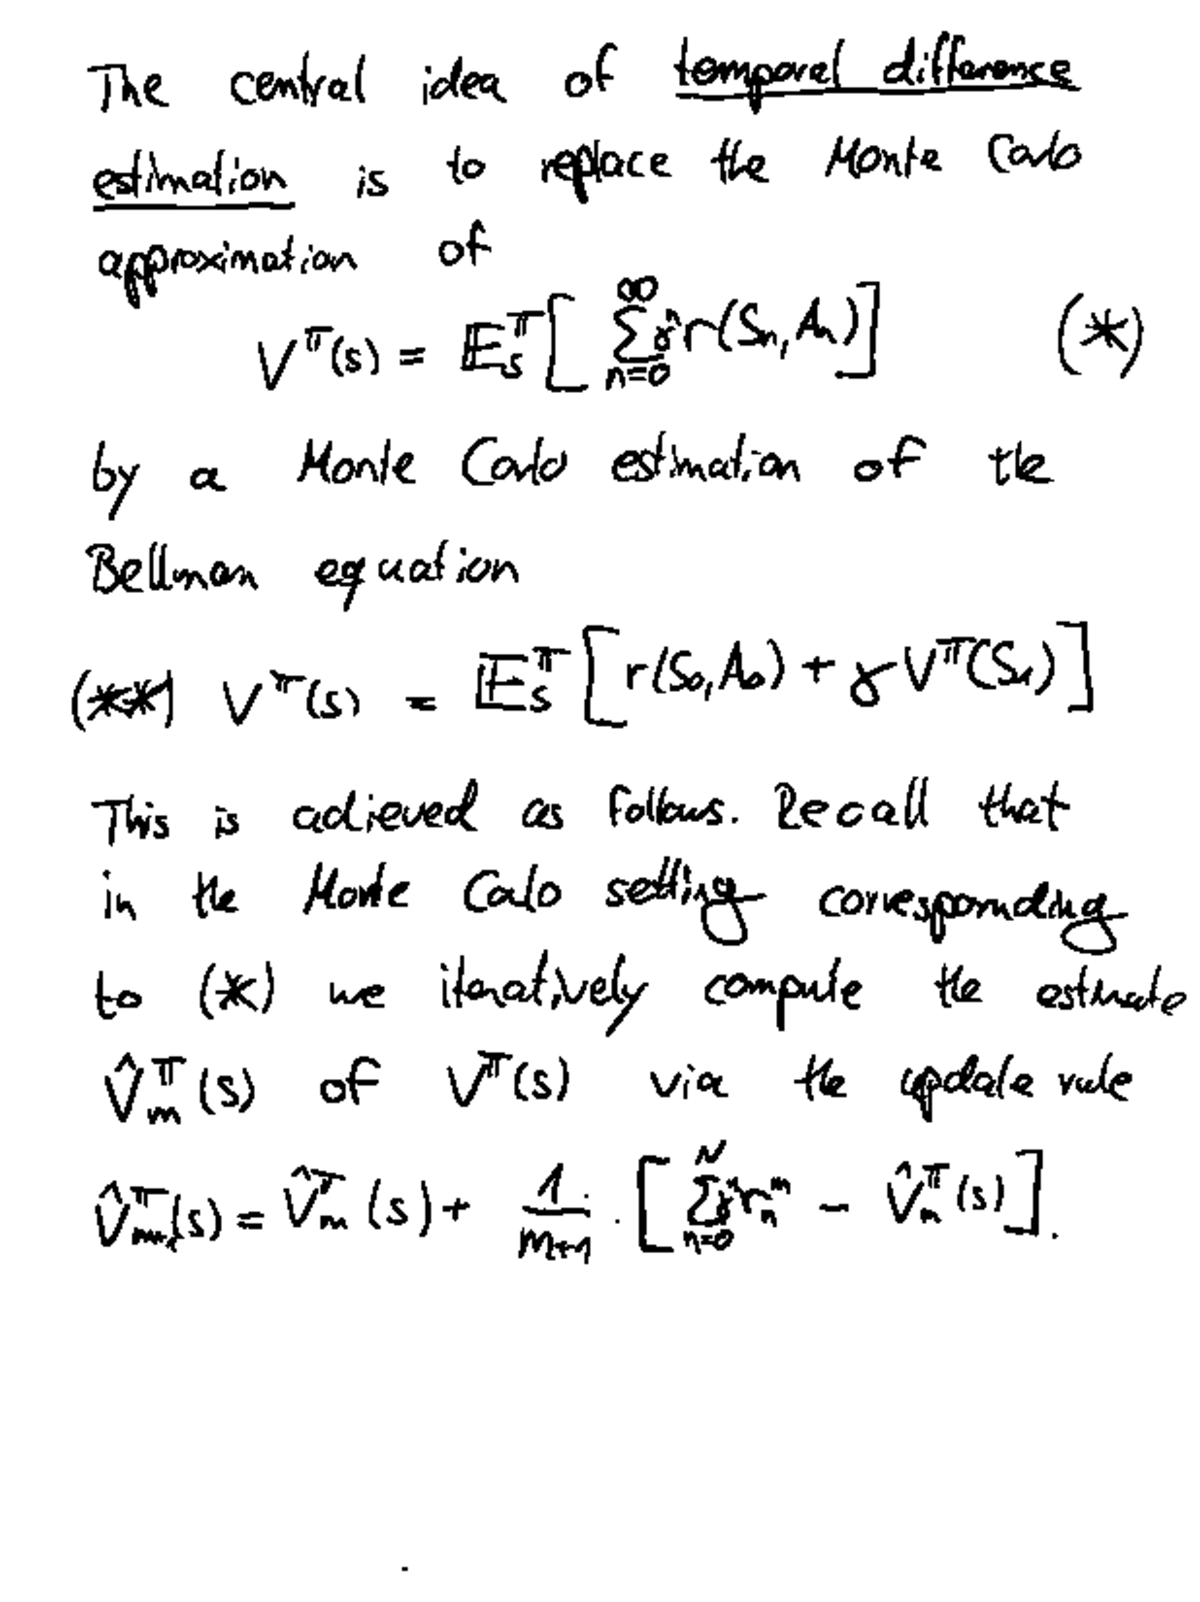 The central idea of temporal difference
estimation is to replace the Monte Carlo
approximation of
V^π(s) = E_s^π [ ∑_{n=0}^∞ γ^n r(S_n, A_n) ] (*)
by a Monte Carlo estimation of the
Bellman equation
(**) V^π(s) = E_s^π [ r(S_0, A_0) + γ V^π(S_1) ]
This is achieved as follows. Recall that
in the Monte Carlo setting corresponding
to (*) we iteratively compute the estimate
V̂_m^π(s) of V^π(s) via the update rule
V̂_{m+1}^π(s) = V̂_m^π(s) + 1/(m+1) · [ ∑_{n=0}^N γ^n r_n^m − V̂_m^π(s) ].